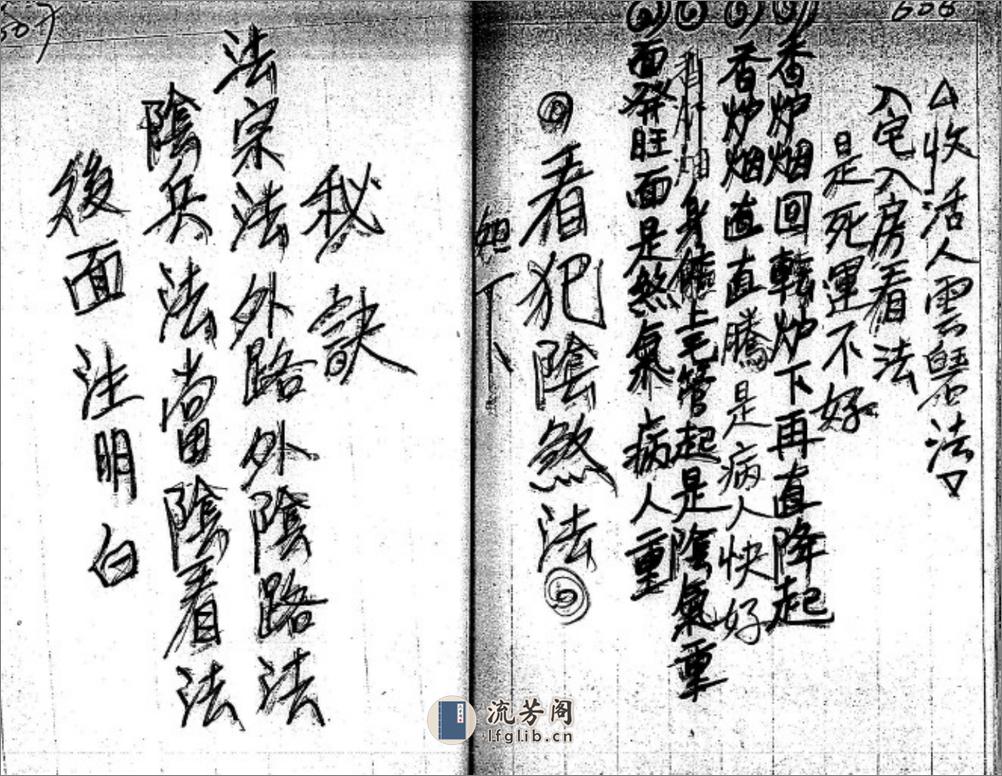 606
△收活人雲
法▽
入宅入房看法
是死運不好
香炉烟回轉炉下再直降起
香炉烟直直騰是病人快好
身體上毛管起是陰氣重
面發旺面是煞氣病人重
看犯陰煞法
如下
507
秘訣
法宗法外路外陰路法
陰兵法當陰看法
後面注明白
流芳阁
lfglib.cn